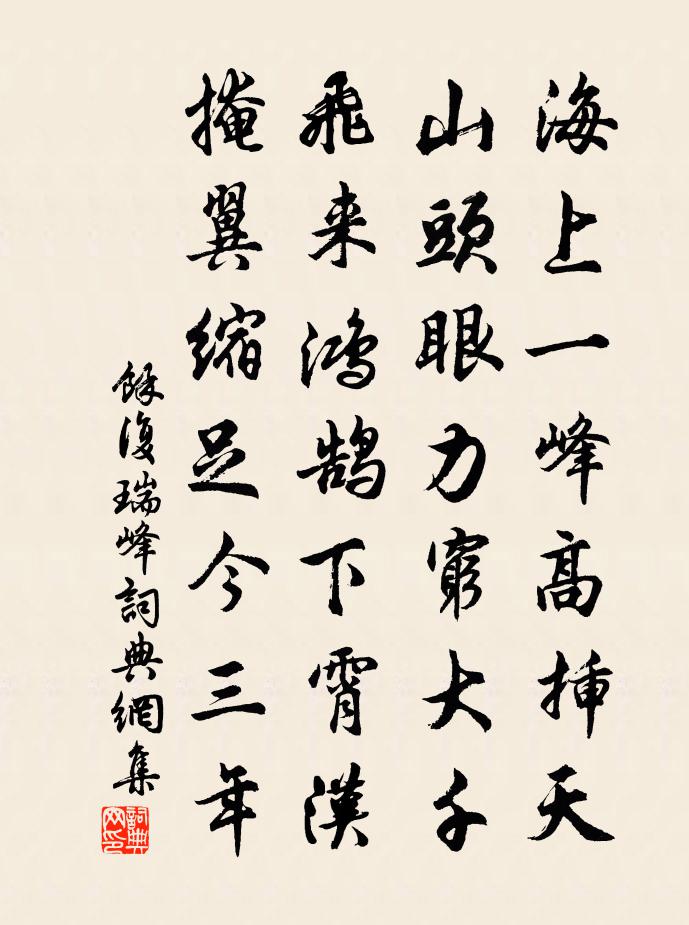 海上一峰高挿天
山頭眼力窮大千
飛来鴻鵠下霄漢
掩翼縮足今三年
餘復瑞峰詞典網集
詞典网印